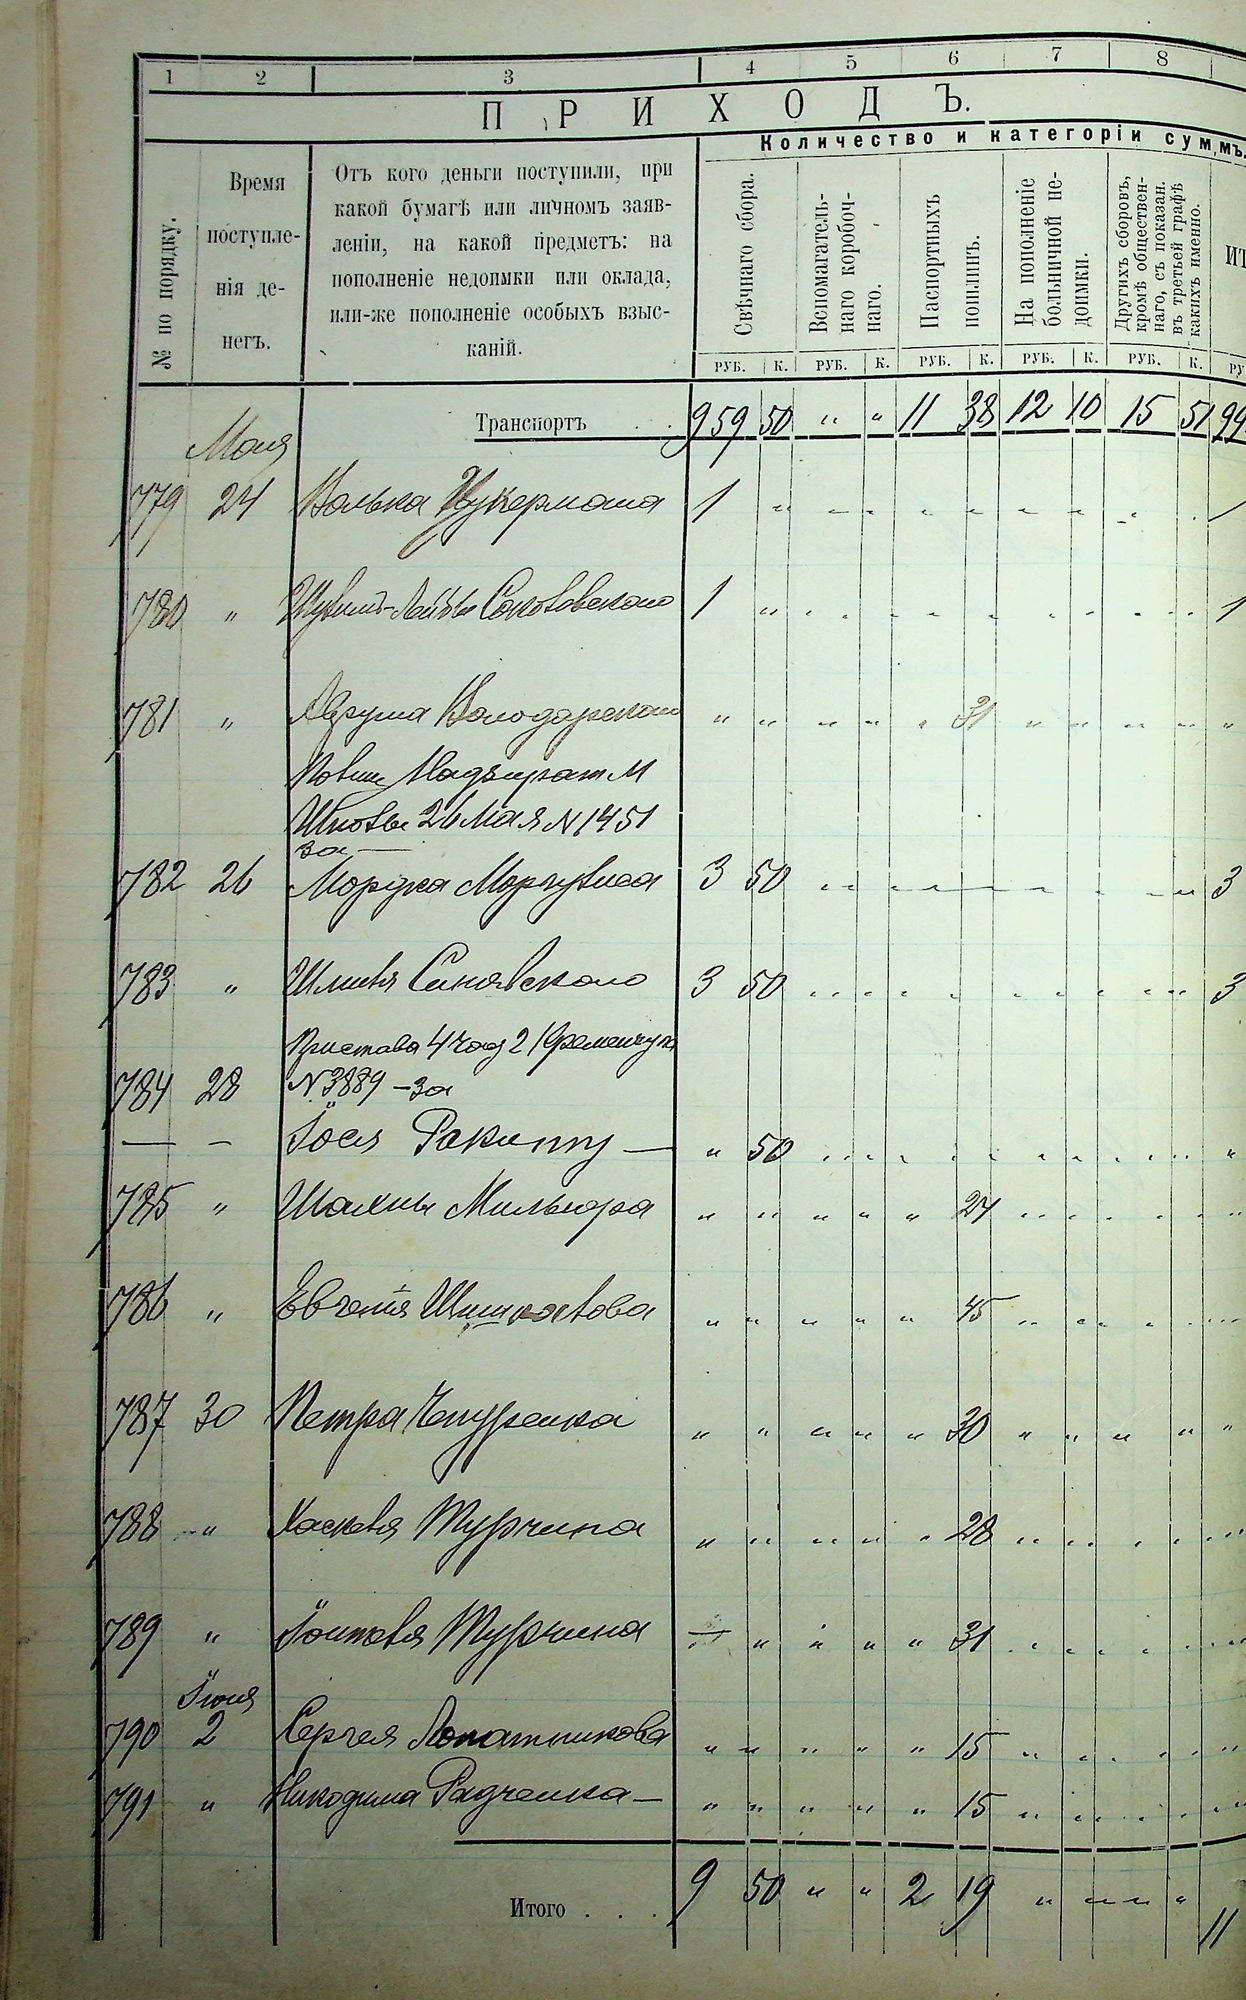 1 2 3 4 5 6 7 8
ПРИХОДЪ.
Количество и категоріи суммъ.
№ по порядку.
Время поступле-
нія де-
негъ.
Отъ кого деньги поступили, при
какой бумагѣ или личномъ заяв-
леніи, на какой предметъ: на
пополненіе недоимки или оклада,
или-же пополненіе особыхъ взыс-
каній.
Свѣчнаго сбора.
Вспомагатель-
наго коробоч-
наго.
Паспортныхъ
пошлинъ.
На пополненіе
больничной не-
доимки.
Другихъ сборовъ,
кромѣ обществен-
наго, съ показан.
въ третьей графѣ
какихъ именно.
ИТ
РУБ. К. РУБ. К. РУБ. К. РУБ. К. РУБ. К. РУ
Транспортъ . . 959 50 " " 11 38 12 10 15 51 99
Мая
779 24 Волька Цукермана 1 " 1
780 " Лейбы Соколовскаго 1 " 1
781 " Абрума Володарскаго " " " " " 31 " " " " "
26 Мая N 1451
за —
782 26 Мордка Моргулиса 3 50 3
783 " Шлиомы Синявскаго 3 50 3
Пристава 4 час 2 Кременчуга
784 28 N 3889 — за
— — Іося Ракиту — " 50 "
785 " Шахны Мильнера " " " " " 24
786 " Евгенія " " " " " 45
787 30 Петра Чепуренка " " " " " 30 " " " " "
788 " Хаскеля Турчина " " " " " 28
789 " Турчина — " " " " 31
Іюня
790 2 Сергея Лопатникова " " " " " 15
791 " Никодима Радченка — " " " " " 15
Итого . . . 9 50 " " 2 19 " " " " 11